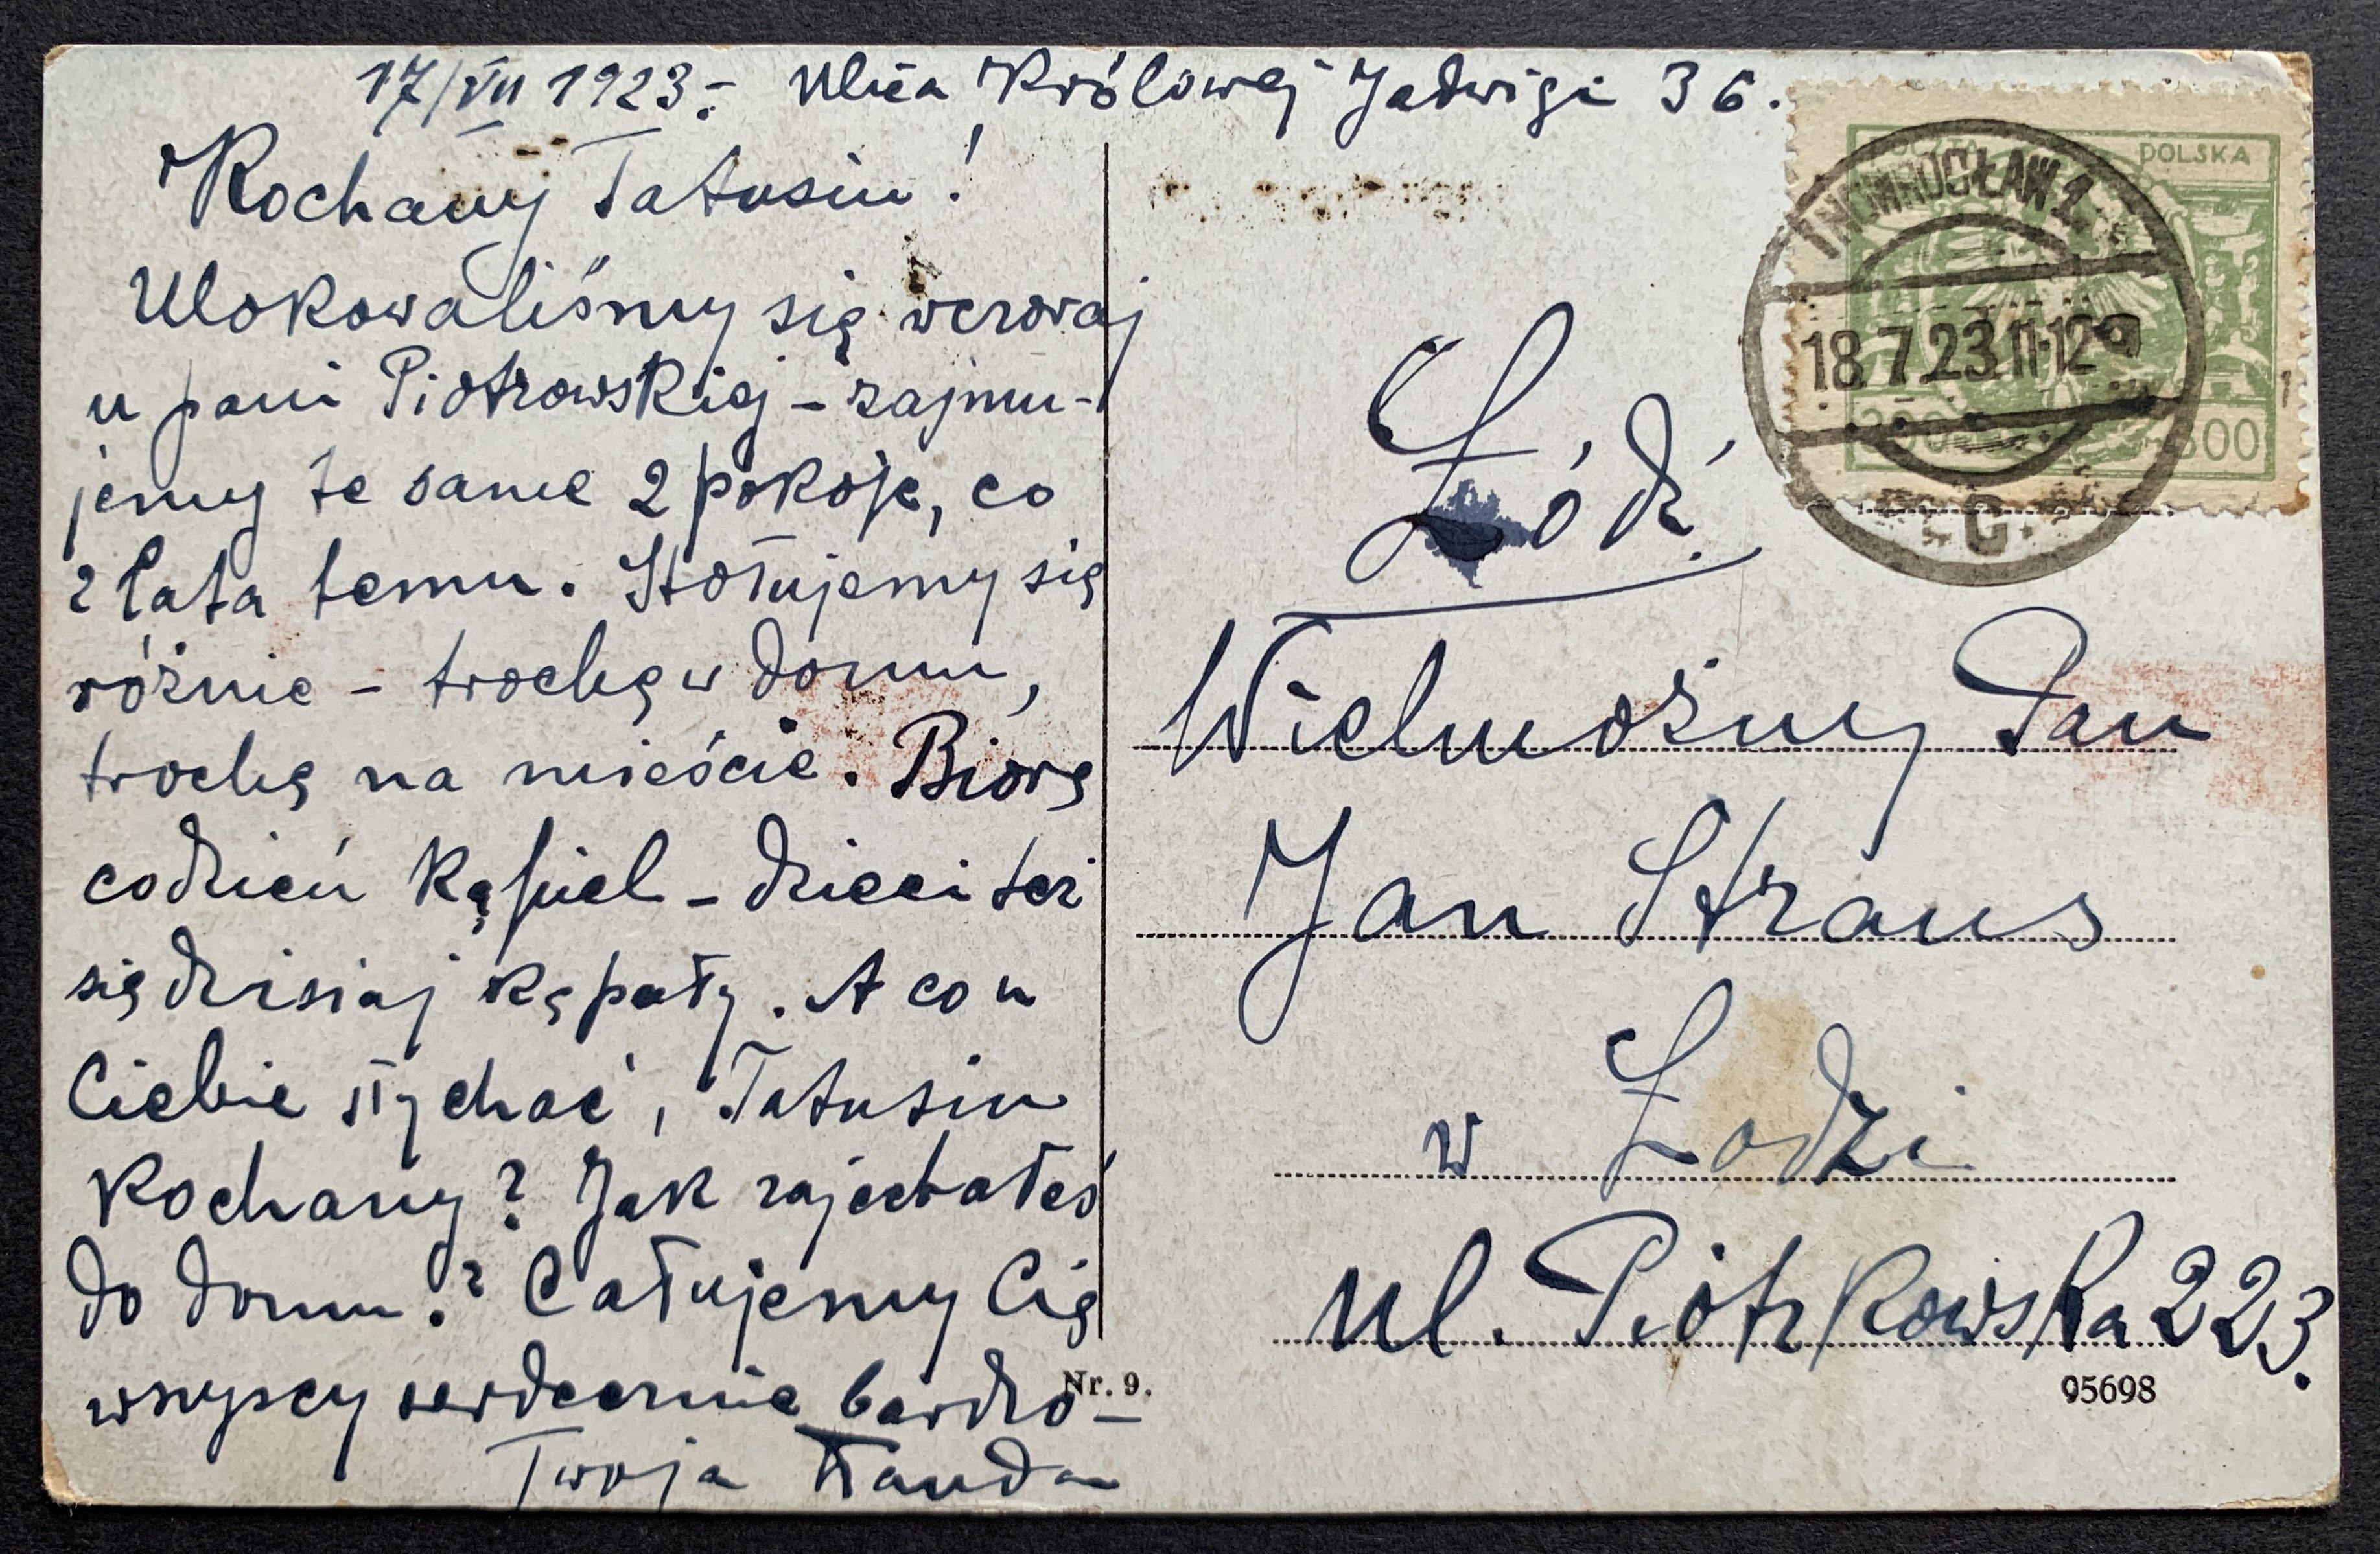 17/VII 1923. Ulica Królowej Jadwigi 36.
Kochany Tatusiu!
Ulokowaliśmy się wczoraj
u pani Piotrowskiej – zajmu-
jemy te same 2 pokoje, co
2 lata temu. Stołujemy się
różnie – trochę w domu,
trochę na mieście. Biorę
codzień kąpiel – dzieci też
się dzisiaj kąpały. A co u
Ciebie słychać, Tatusiu
kochany? Jak zajechałeś
do domu? Całujemy Cię
wszyscy serdecznie bardzo –
Twoja Wanda
POCZTA POLSKA
300 300
INOWROCŁAW 2
18.7.23.11-12
c
Łódź.
Wielmożny Pan
Jan Straus
w Łodzi
ul. Piotrkowska 223.
Nr. 9.
95698